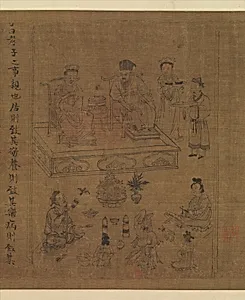 子之事親也居則致其敬養則致其樂病則致其